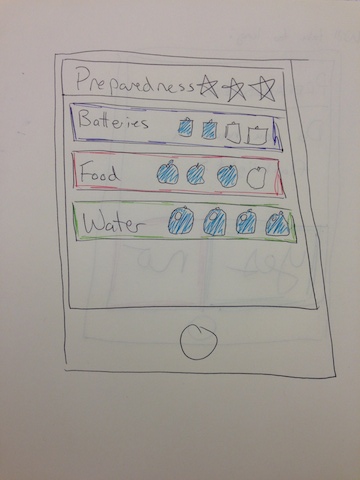 Preparedness
Batteries
Food
Water